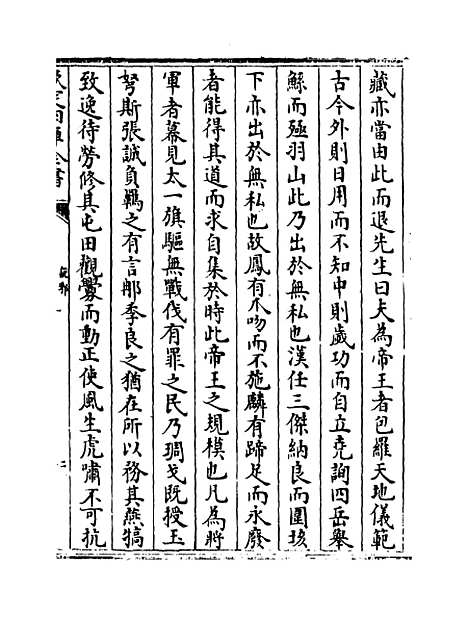 藏亦當由此而退先生曰夫為帝王者包羅天地儀範
古今外則日用而不知中則歲功而自立堯詢四岳舉
鯀而殛羽山此乃出於無私也漢任三傑納良而圍垓
下亦出於無私也故鳳有爪吻而不施麟有蹄足而永廢
者能得其道而求自集於時此帝王之規模也凡為將
軍者幕見太一旗驅無戰伐有罪之民乃琱戈既授玉
弩斯張誠負羈之有言邮季良之猶在所以務其燕犒
致逸待勞修其屯田觀釁而動正使風生虎嘯不可抗
欽定四庫全書
說郛
二